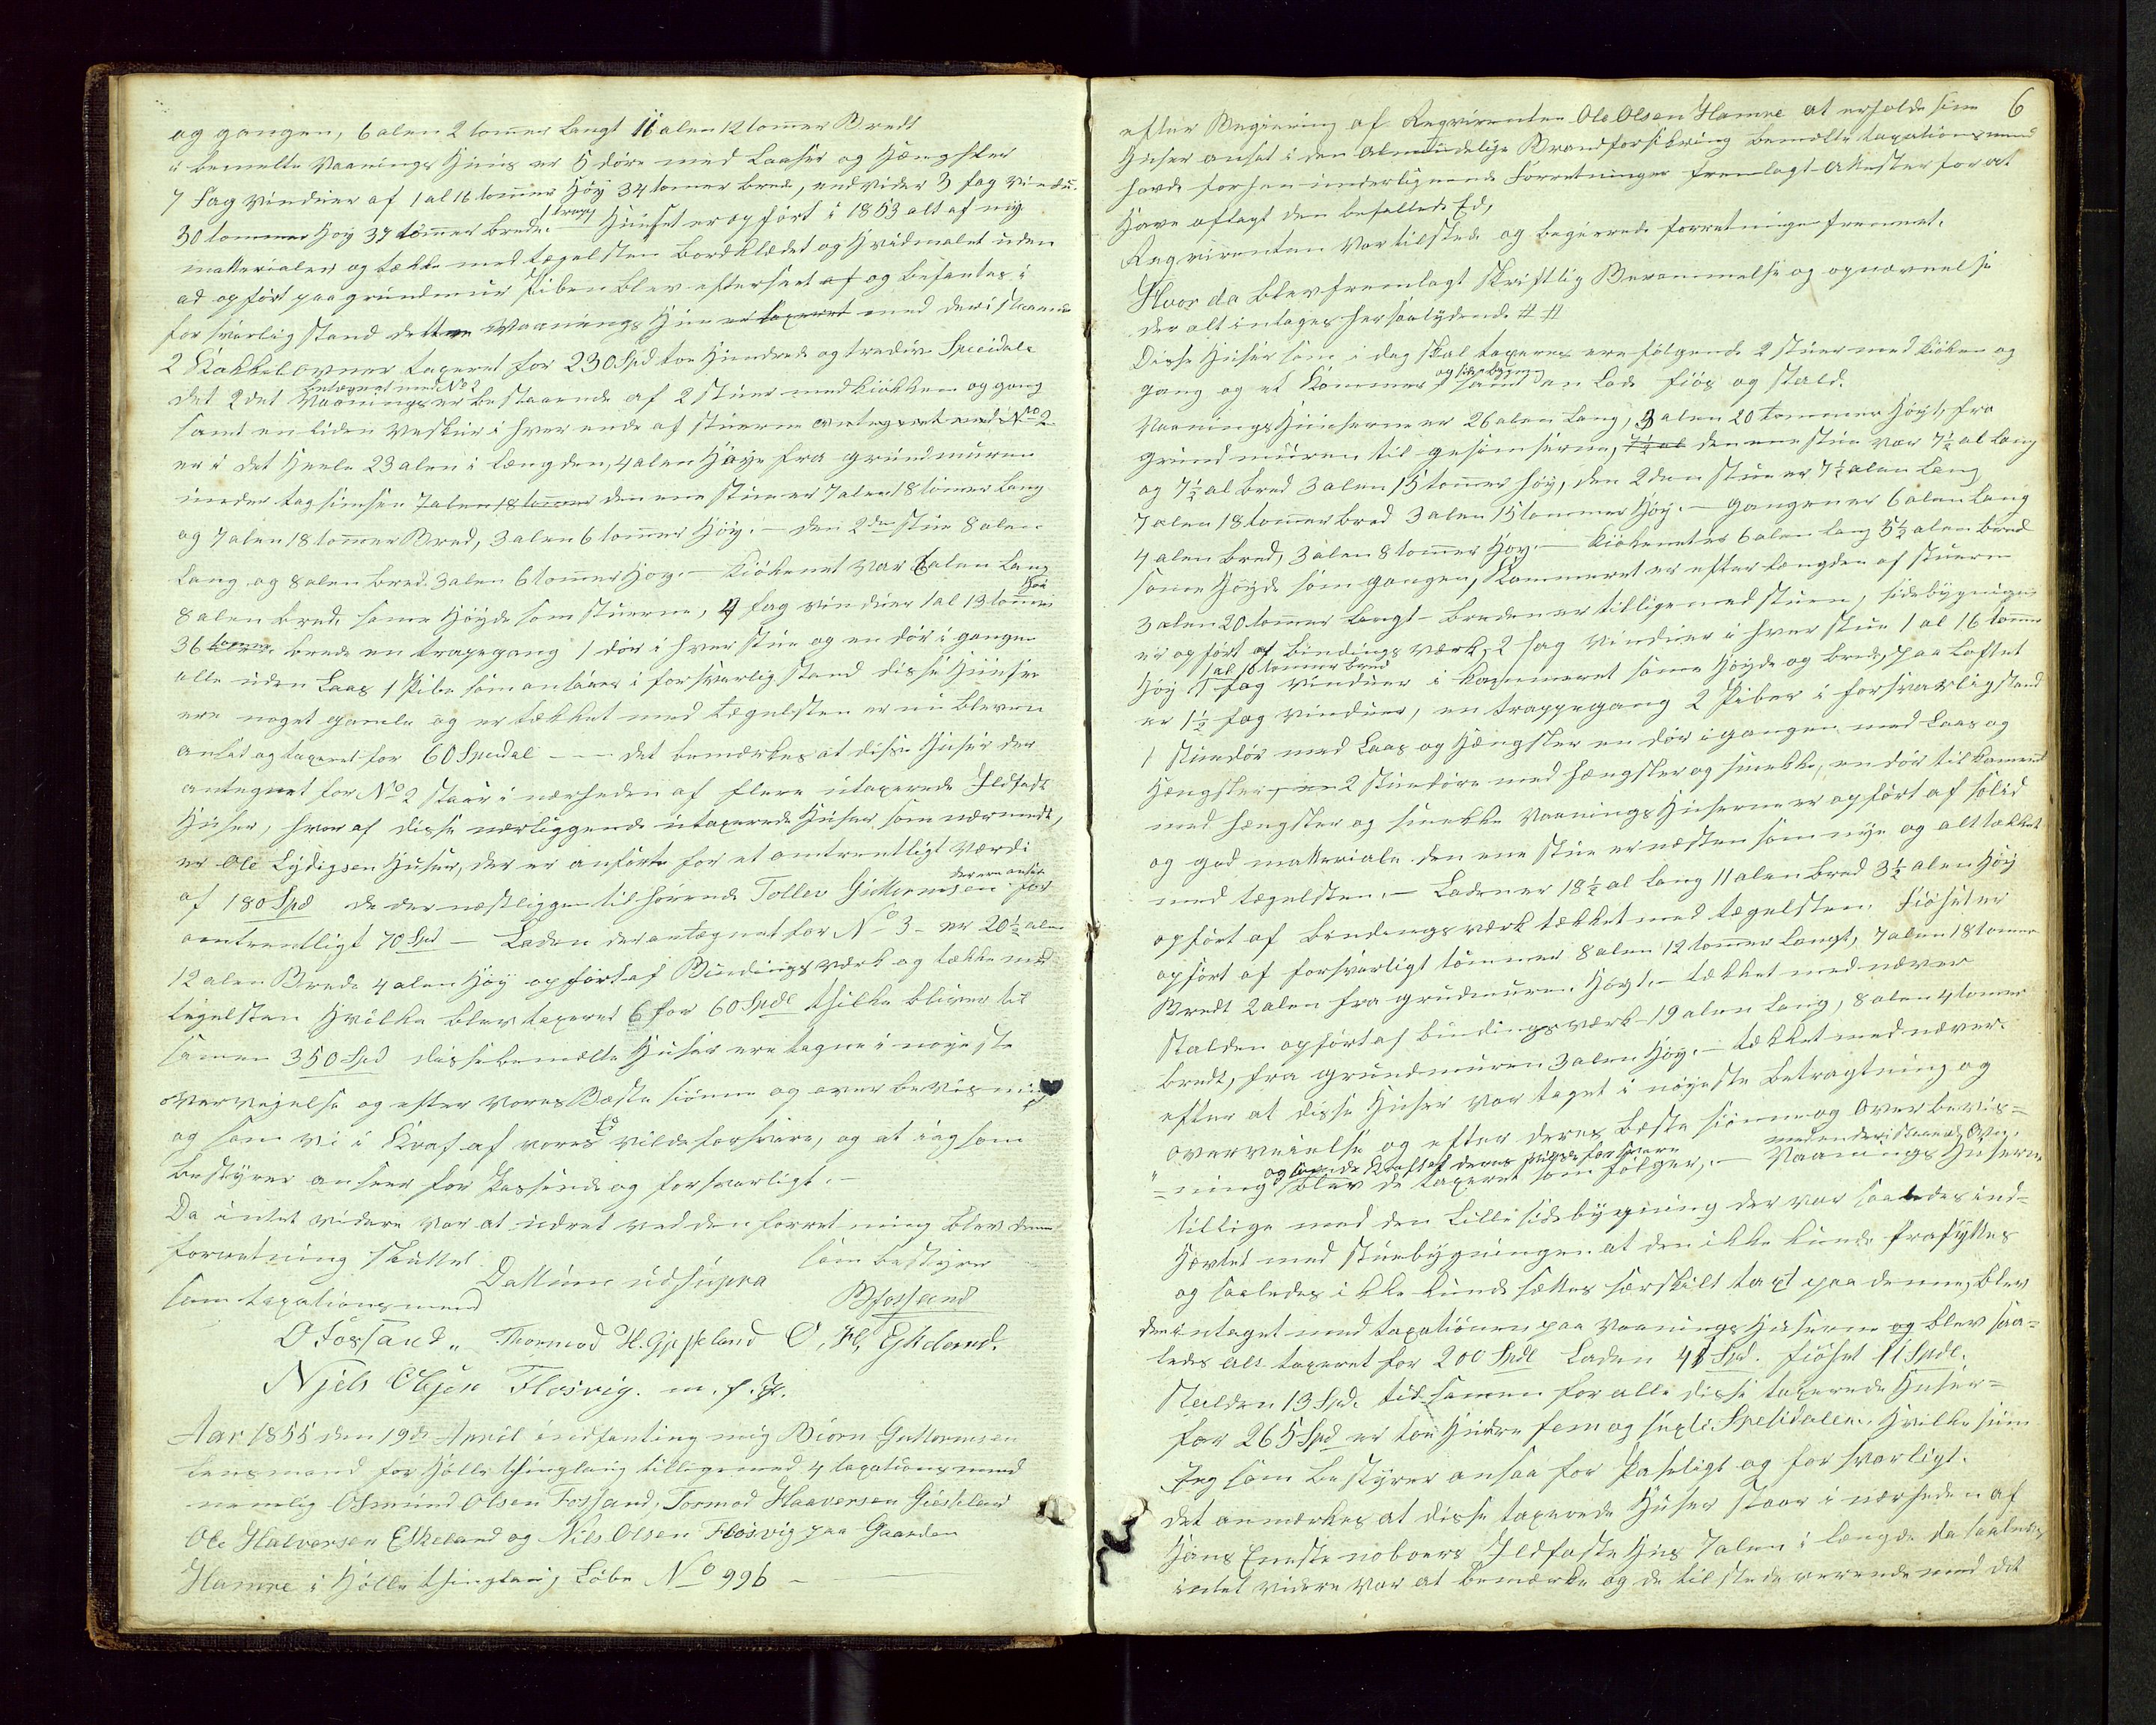 og gangen, 6 alen 2 tomer Langt 11 alen 12 tomer Bredt
i bemelte Vaanings Huus er 5 döre med Laaser og Hængsler
7 Fag Vinduer af 1 al 16 tomer Höy 34 tomer brede, endvider 3 fag Vindu-
30 tommer Höy 37 tömer brede. 1 trapp Huuset er opfört i 1853 alt af nÿe
matterialer og tække med tægelsten bordklædet og Hvidmalet uden
ad opfört paa grundmuur Piben blev efterseet af og befantes i
forsvarlig stand dette Vaanings Huus er taxeret med deri staaende
2 Kakkelovner taxeret for 230 Spd toe Hundrede og tredive Speciedaler
Det 2det Vaanings betegnet med No 2 er bestaaende af 2 stuer med kiökken og gang
samt en liden Veskur i hver ende af stuerne antegnet med No 2
er i det Heele 23 alen i Længden, 4 alen Höye fra grundmuren
under tagsimsen 7 alen 18 tommer den ene stue er 7 alen 18 tomer Lang
og 7 alen 18 tommer Bred, 3 alen 6 tomer Höy. - den 2den stue 8 alen
Lang og 8 alen bred. 3 alen 6 tomer Hoy. - Kiökenet var 6 alen Lang
8 alen bred. same Höyde som stuerne, 4 fag Vinduer 1 al 13 tommer Höi
36 tomme brede en trapegang 1 dör i hver stue og en dör i gangen
alle uden Laas 1 Pibe som ansaaes i forsvarlig stand disse Huuse
ere noget gamle og er tækket med tægelsten er nu bleven
anset og taxeret for 60 Specidal --- det bemærkes at disse Huser der
antegnet for No 2 staar i nærheden af flere utaxerede Ildfaste
Huser, hvor af disse nærliggende utaxerede Huser som nærmest,
er Ole Lydigsen Huser, der er anförte for et omtrentligt Værdi
af 180 Spd de der næstliggen tilhörende Tollev Guttormsen der ere anför for
omtrentligt 70 Spd - Laden der antægnet for No 3 - er 20½ alen
12 alen Brede 4 alen Höy opfört af Bindings værk og tække med
tegelsten Hvilke blev taxeret for 60 Spdl Hvilke bliver til
samen 350 Spd disse bemælte Huser ere tagne i nöyeste
overvejelse og efter Vores Bedste Skiönne og overbevisning
og som vi i Kraf af vores Ed vilde forsvare, og at iag som
bestyrer anseer for Passende og forsvarligt. -
Da intet videre var at udret ved den forretning blev denne
forretning sluttet.
Dattum ud supra som bestyrer
som taxationsmend BFossand
O Fossand „ Thormod H. Gjeskeland O, Hl, Eskeland.
Njels Olsen Flosvig. m. f. P.
Aar 1855 den 19de April indfanting mig Biörn Guttormsen
Lensmand for Hölle thinglaug tilligemed 4 taxationsmend
nemlig Osmund Olsen Fossand, Tormod Haaversen Gieskeland
Ole Halversen Eskeland og Nils Olsen Flosvig paa Gaarden
Hamre i Hölle thinglaug Löbe No 996 -
6
efter Begiering af Reqvirenten Ole Olsen Hamre at erholde sine
Huser anset i den Almindelige Brandforsikring bemelte taxationsmend
havde for hen underlignende Forretninger fremlagt Attester for at
have aflagt den befallede Ed,
Reqvirenten var tilstede og begierede forretningen fremmet.
Hvor da blev fremlagt Skriftlig Berammelse og opnævnelse
der alt intages hersaalydende # #
Disse Huser som i dag skal taxeres ere fölgende 2 stuer med kiöken og
gang og et Kammer og sidebygning samt en Lade fiös og stald.
Vaanings Huuserne er 26 alen Lang, 3 alen 20 tommer Höyt, fra
grundmuuren til gesimserne, 7½ al den ene stue var 7½ al Lang
og 7½ al bred 3 alen 15 tomer höy, den 2den stue er 7½ alen Lang
7 alen 18 tomer bred 3 alen 15 tommer Höy. - gangen er 6 alen Lang
4 alen bred, 3 alen 8 tomer Höy. - kiökenet er 6 alen lang 5½ alen bred
same Höyde som gangen, Kammeret er efter Længden af stuerne
3 alen 20 tomer Langt - breden er tilligemed stuen, sidebygningen
er opfört af bindings værk, 2 fag Vinduer i hver stue 1 al 16 tomer
Höy 1 al 10 tomer bred 1 fag Vinduer i Kammeret same Höyde og bred, paa Loftet
er 1½ fag Vinduer, en trappegang 2 Piber i forsvarlig stand
1 Stuedör med Laas og Hængsler en dör i gangen med Laas og
Hængsler, 2 stuedöre med hængsler og sinekke, en dör til kamers
med hængsler og sinekke Vaanings Huserne er opfört af solid
og god matteriale den ene stue er næsten som nye og alt tækket
med tægelsten. - Laden er 18½ al Lang 11 alen bred 3½ alen Höy
opfört af bindings værk tækket med tægelsten. Fiöset er
opfört af forsvarligt tömmer 8 alen 12 tomer Langt, 7 alen 18 tomer
Bredt 2 alen fra grundmuren Höyt. - tækket med næver
Stalden opfört af bindings værk - 19 alen Lang, 8 alen 4 tomer
bredt, fra grundmuren 3 alen Höy. - tækket med næver.
efter at disse Huser var taget i nöyeste betragtning og
overveielse og efter deres bedste skiönne og Overbevis=
=ning og som de i Kraft af deres Ed vilde forsvare blev de taxeret som fölger. - Vaanings Huserne med en deri staaende Ovn,
tillige med den Lille sidebygning der var saaledes ind-
Hævtet med stuebygningen at den ikke kunde fraflyttes
og saaledes ikke kunde sættes særskilt taxt paa denne, blev
den intaget med taxationen paa Vaanings Huserne og blev saa=
ledes alt taxeret for 200 Spdl Laden 41 Spd. fiöset 11 Spdl.
Stalden 13 Spd. til samen for alle disse taxerede Huser =
for 265 Spd er toe Hundre fem og sexti Spesidaler. Hvilke sum
Jeg som bestyrer ansaa for Paseligt og forsvarligt.
det anmærkes at disse taxerede Huser staar i nærheden af
Hans Eneste naboers Ildfaste Hus 7 alen i længde da saaledes
intet videre var at bemærke og de tilstede verende med det